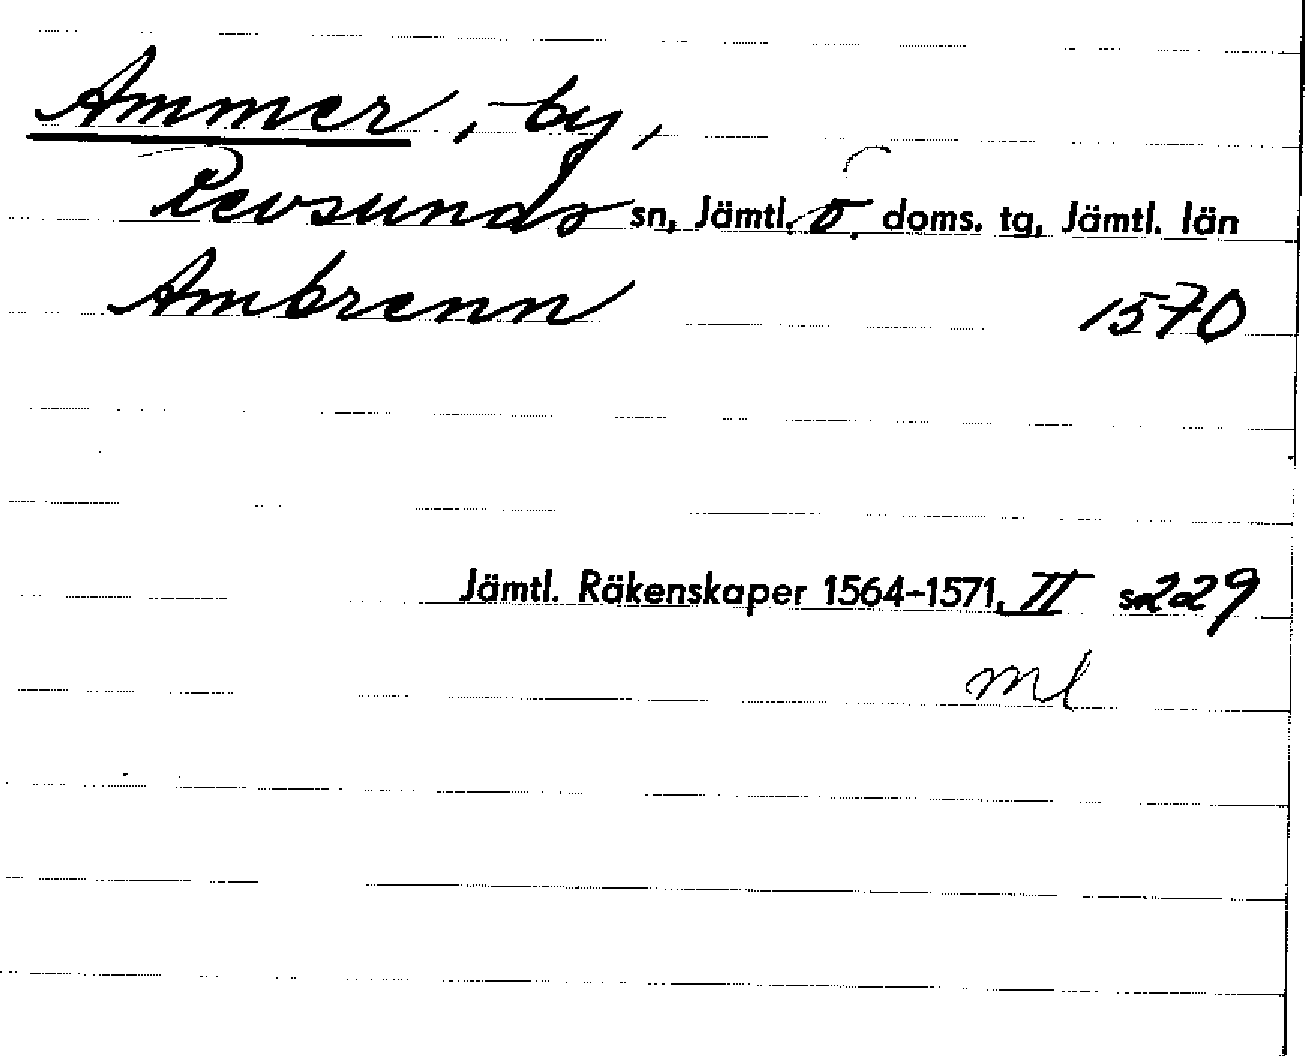 Ammer, by,
Revsunds sn, Jämtl. ö. doms. tg, Jämtl. län
Ambrenn 1570
Jämtl. Räkenskaper 1564-1571, II s. 229
ml